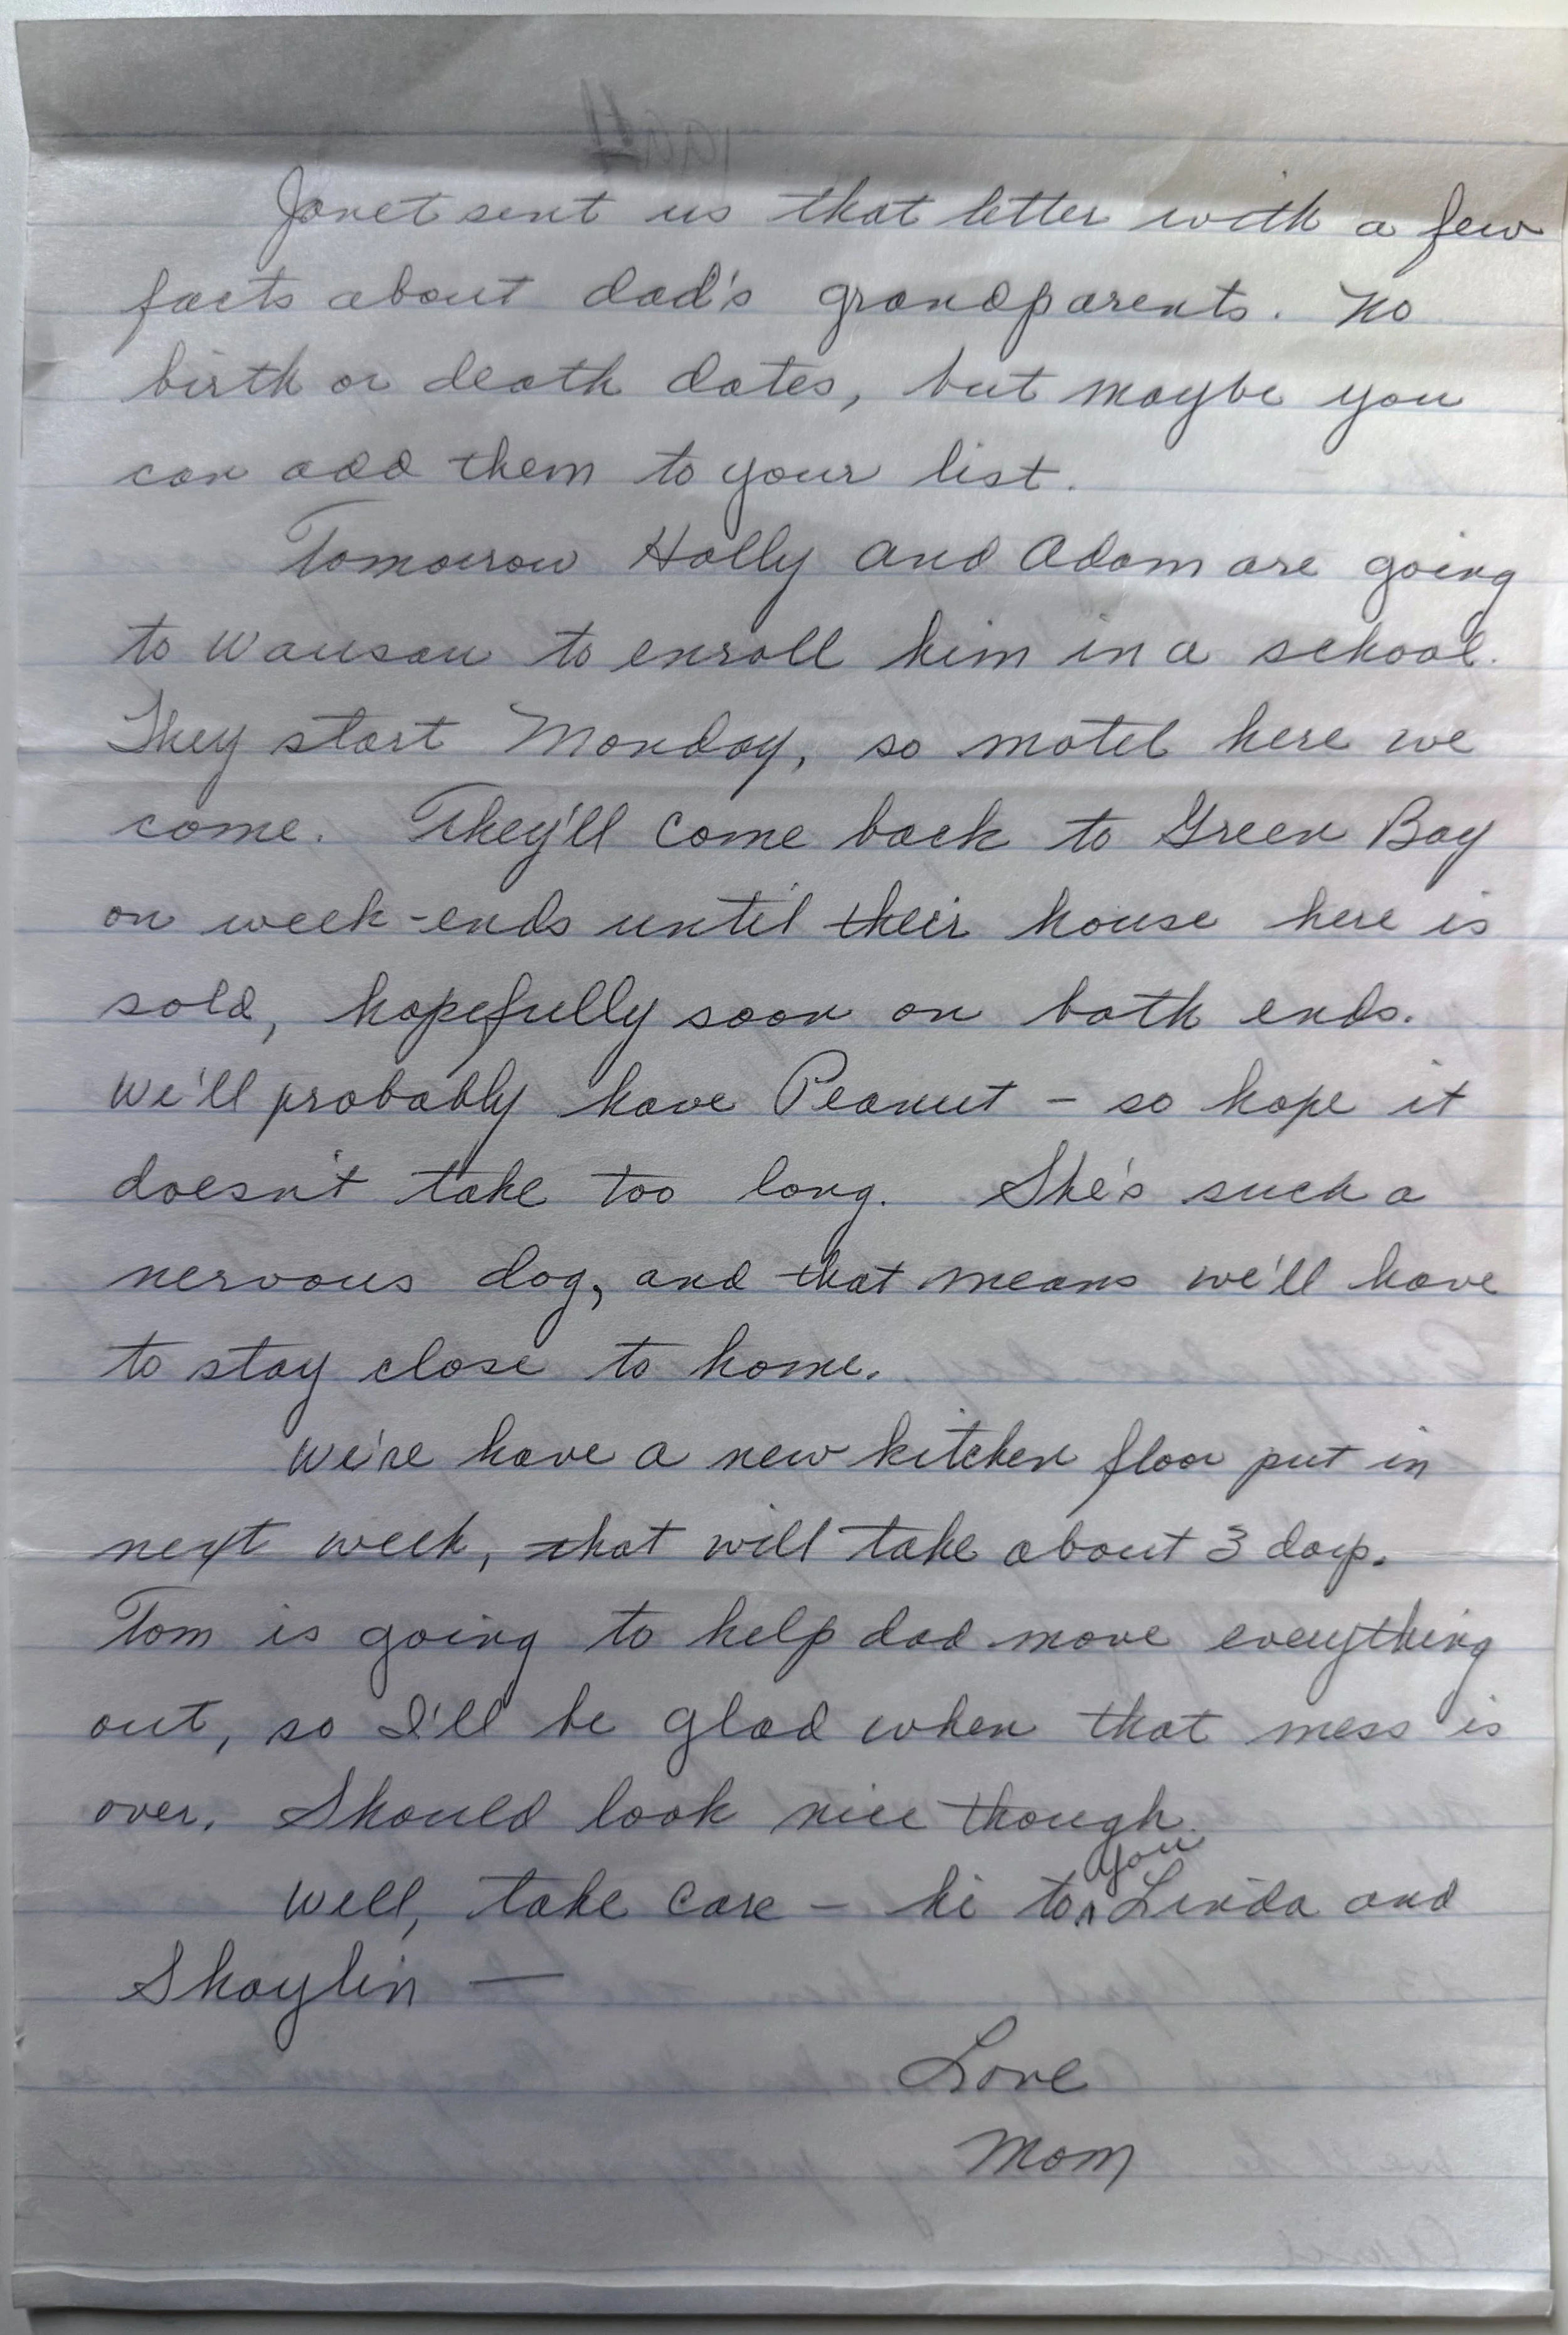 Janet sent us that letter with a few
facts about dad's grandparents. No
birth or death dates, but maybe you
can add them to your list.
Tomorrow Holly and Adam are going
to Wausau to enroll him in a school.
They start Monday, so motel here we
come. They'll come back to Green Bay
on week-ends until their house here is
sold, hopefully soon on both ends.
We'll probably have Peanut - so hope it
doesn't take too long. She's such a
nervous dog, and that means we'll have
to stay close to home.
We're have a new kitchen floor put in
next week, that will take about 3 days.
Tom is going to help dad move everything
out, so I'll be glad when that mess is
over. Should look nice though.
Well, take care - hi to you Linda and
Shaylin —
Love
Mom